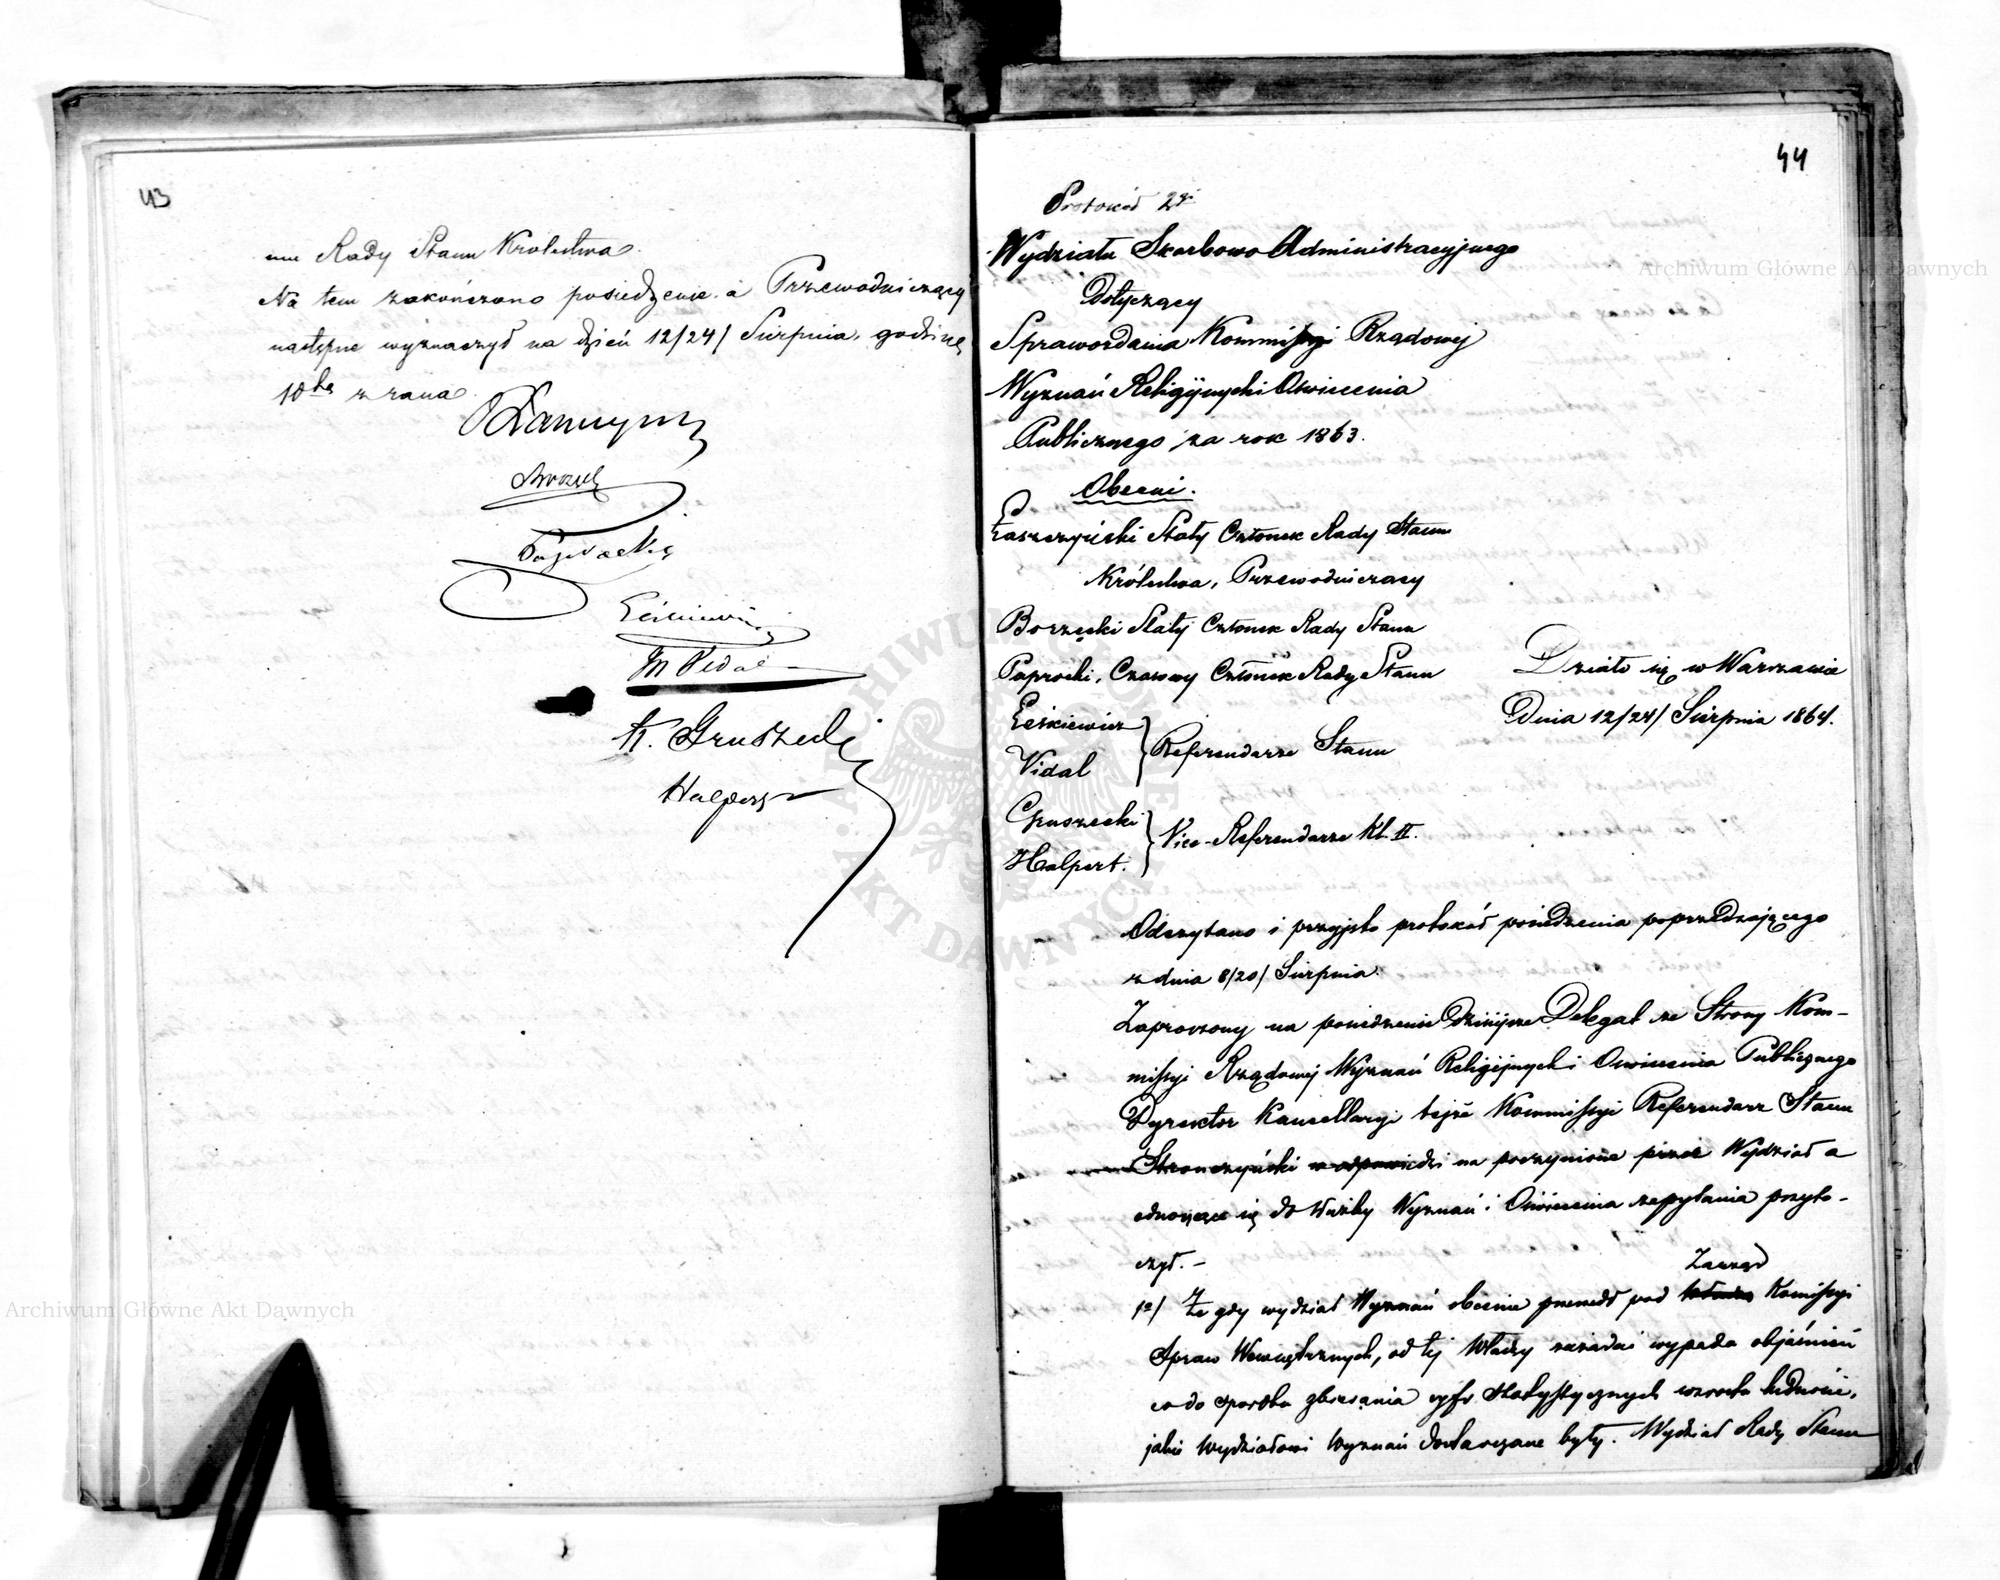 43
mu Rady Stanu Królestwa.
Na tem zakończono posiedzenie, a Przewodniczący
następne wyznaczył na dzień 12/24/ Sierpnia, godzinę
10tą z rana.
Paprocki
Leśkiewicz
M Vidal
K. Gruszecki
Halpert
44
Protokół 2gi
Wydziału Skarbowo Administracyjnego
Dotyczący
Sprawozdania Kommissyi Rządowej
Wyznań Religijnych i Oświecenia
Publicznego za rok 1863.
Obecni.
Łaszczyński Stały Członek Rady Stanu
Królestwa, Przewodniczący
Borzęcki Stały Członek Rady Stanu
Paprocki, Czasowy Członek Rady Stanu
Działo się w Warszawie
Dnia 12/24/ Sierpnia 1864.
Leśkiewicz
Vidal
Referendarze Stanu
Gruszecki
Halpert.
Vice-Referendarze Kl. II.
Odczytano i przyjęto protokół posiedzenia poprzedzającego
z dnia 8/20/ Sierpnia.
Zaproszony na posiedzenie dzisiejsze Delegat ze Strony Kom-
missyi Rządowej Wyznań Religijnych i Oświecenia Publicznego
Dyrektor Kancellaryi tejże Kommissyi Referendarz Stanu
Stronczyński w odpowiedzi na poczynione przez Wydział a
odnoszące się do służby Wyznań i Oświecenia zapytania przyto-
czył. -
1o/ Że gdy wydział Wyznań obecnie przeszedł pod Zarząd Komissyi
Spraw Wewnętrznych, od tej Władzy zażądać wypada objaśnień
co do sposobu zbierania cyfr statystycznych wzrostu ludności,
jakie wydziałowi Wyznań dostarczane były. Wydział Rady Stanu
Archiwum Główne Akt Dawnych
Archiwum Główne Akt Dawnych
ARCHIWUM GŁÓWNE AKT DAWNYCH